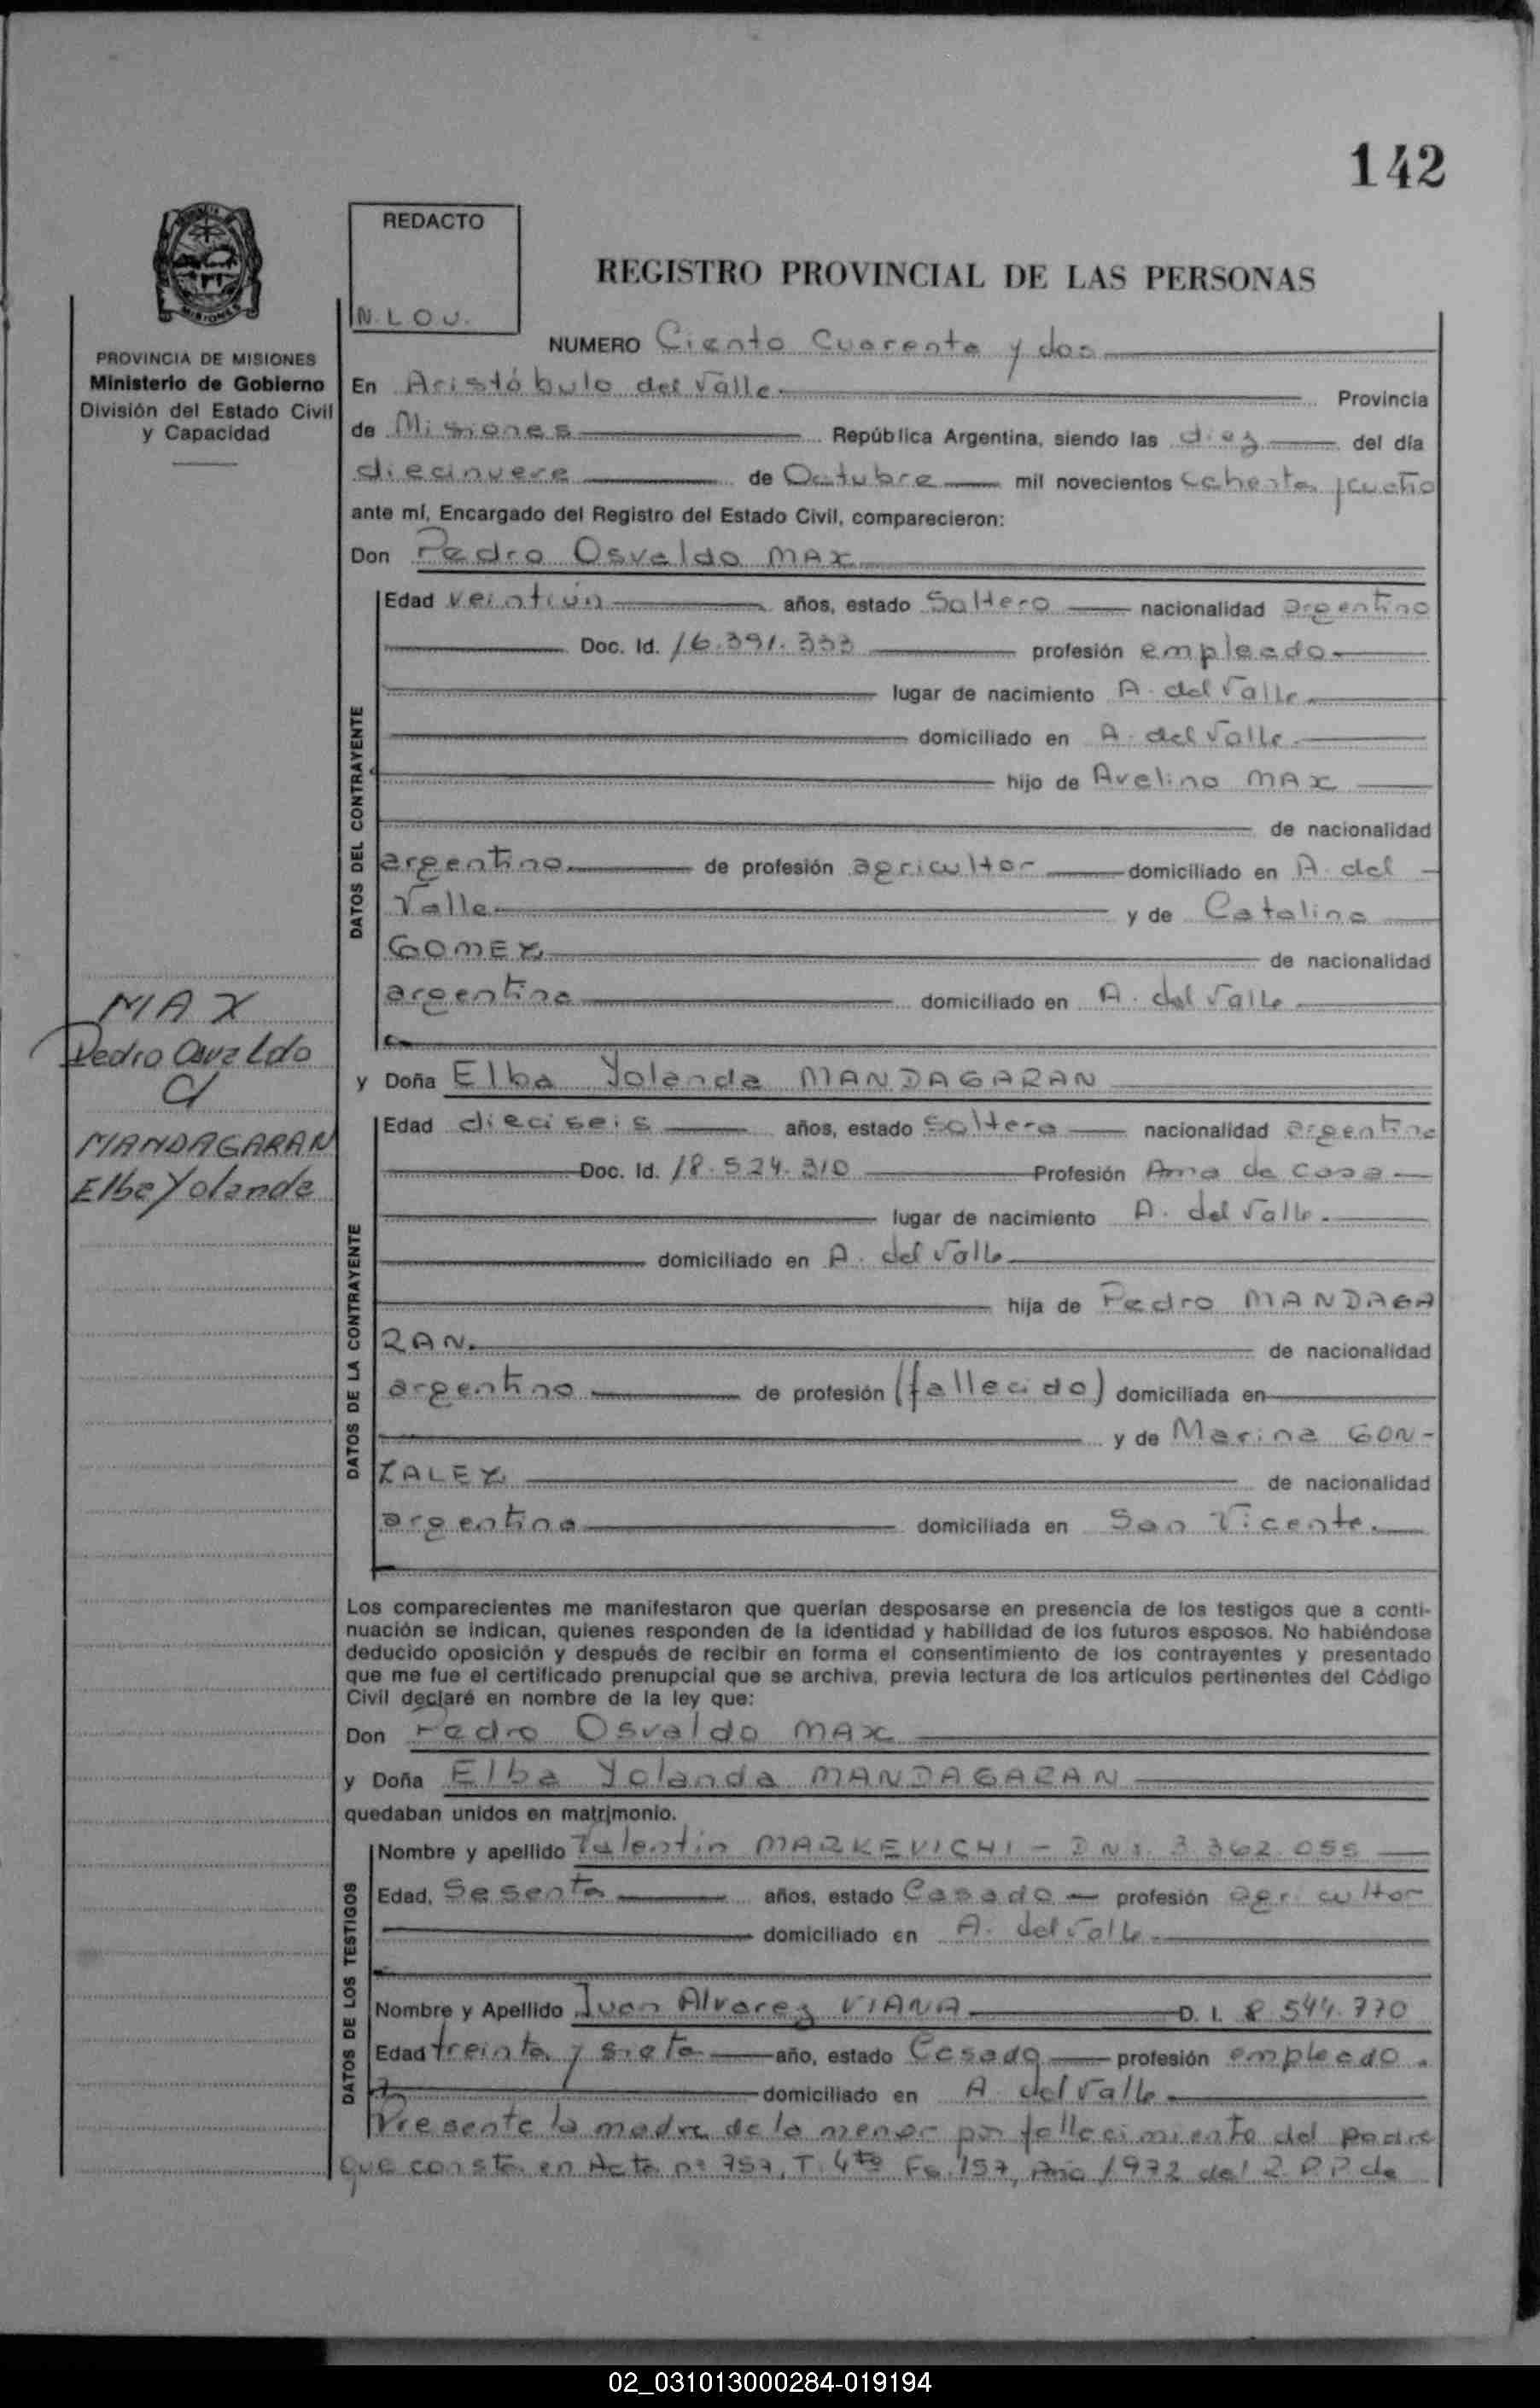 142
REDACTO
N. L O U.
REGISTRO PROVINCIAL DE LAS PERSONAS
PROVINCIA DE MISIONES
Ministerio de Gobierno
División del Estado Civil
y Capacidad
NUMERO Ciento Cuarenta y dos
En Aristóbulo del Valle Provincia
de Misiones República Argentina, siendo las diez del día
diecinueve de Octubre mil novecientos ochenta y cuatro
ante mí, Encargado del Registro del Estado Civil, comparecieron:
Don Pedro Osvaldo MAX
DATOS DEL CONTRAYENTE
Edad veintiún años, estado Soltero nacionalidad argentino
Doc. Id. 16.391.333 profesión empleado
lugar de nacimiento A. del Valle
domiciliado en A. del Valle
hijo de Avelino MAX
de nacionalidad
argentino de profesión agricultor domiciliado en A. del
Valle y de Catalina
GOMEZ de nacionalidad
argentina domiciliado en A. del Valle
MAX
Pedro Osvaldo
c/
MANDAGARAN
Elba Yolanda
y Doña Elba Yolanda MANDAGARAN
DATOS DE LA CONTRAYENTE
Edad dieciseis años, estado Soltera nacionalidad argentina
Doc. Id. 18.524.310 Profesión Ama de casa
lugar de nacimiento A. del Valle
domiciliado en A. del Valle
hija de Pedro MANDAGA
RAN. de nacionalidad
argentino de profesión (fallecido) domiciliada en
y de Marina GON-
ZALEZ de nacionalidad
argentina domiciliada en San Vicente.
Los comparecientes me manifestaron que querían desposarse en presencia de los testigos que a conti-
nuación se indican, quienes responden de la identidad y habilidad de los futuros esposos. No habiéndose
deducido oposición y después de recibir en forma el consentimiento de los contrayentes y presentado
que me fue el certificado prenupcial que se archiva, previa lectura de los artículos pertinentes del Código
Civil declaré en nombre de la ley que:
Don Pedro Osvaldo MAX
y Doña Elba Yolanda MANDAGARAN
quedaban unidos en matrimonio.
DATOS DE LOS TESTIGOS
Nombre y apellido Valentin MARKEVICHI - DNI. 3.362.055
Edad, Sesenta años, estado Casado profesión agricultor
domiciliado en A. del Valle
Nombre y Apellido Juan Alvarez VIANA D. I. 8.544.770
Edad treinta y siete año, estado Casado profesión empleado.
domiciliado en A. del Valle
Presente la madre de la menor por fallecimiento del padre
que consta en Acta nº 757, T. 4to Fo. 157, Año 1972 del R.P.P de
02_031013000284-019194